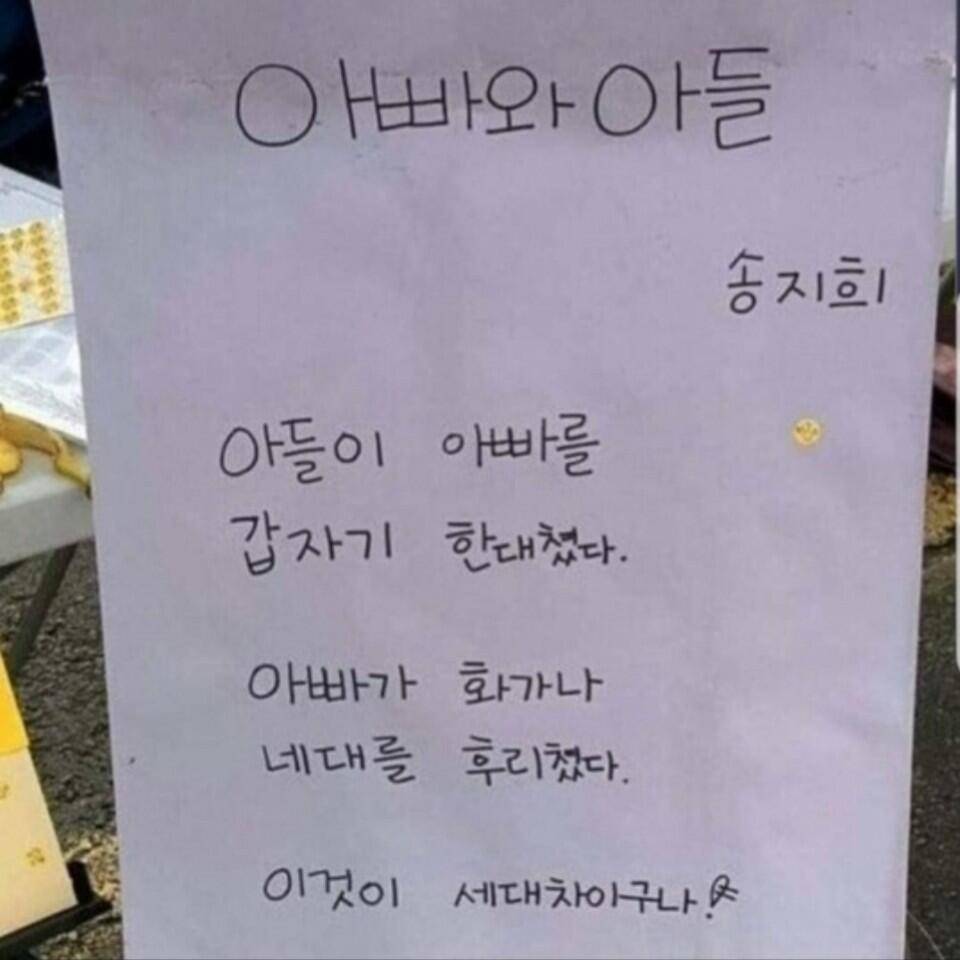 아빠와 아들
송지희
아들이 아빠를
갑자기 한대쳤다.
아빠가 화가나
네대를 후리쳤다.
이것이 세대차이구나!